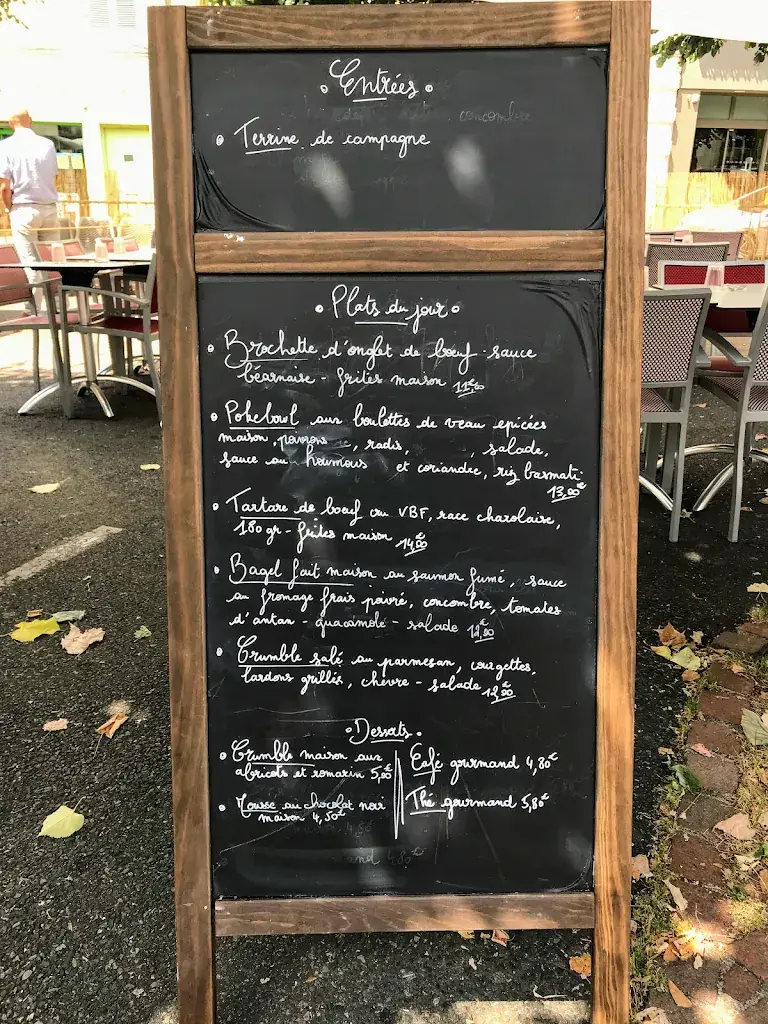 Entrées
Terrine de campagne
concombre
Plats du jour
Brochette d'onglet de bœuf - sauce
béarnaise - frites maison 11€,50
Pokebowl aux boulettes de veau épicées
maison, poivrons, radis, , salade,
sauce au houmous et coriandre, riz basmati
13,00€
Tartare de bœuf cru VBF, race charolaise,
180 gr - frites maison 14€00
Bagel fait maison au saumon fumé, sauce
au fromage frais poivré, concombre, tomates
d'antan - guacamole - salade 12€,00
Crumble salé au parmesan, courgettes,
lardons grillés, chèvre - salade 12€00
Desserts
Crumble maison aux
abricots et romarin 5,00€
Mousse au chocolat noir
maison 4,50€
Café gourmand 4,80€
Thé gourmand 5,80€